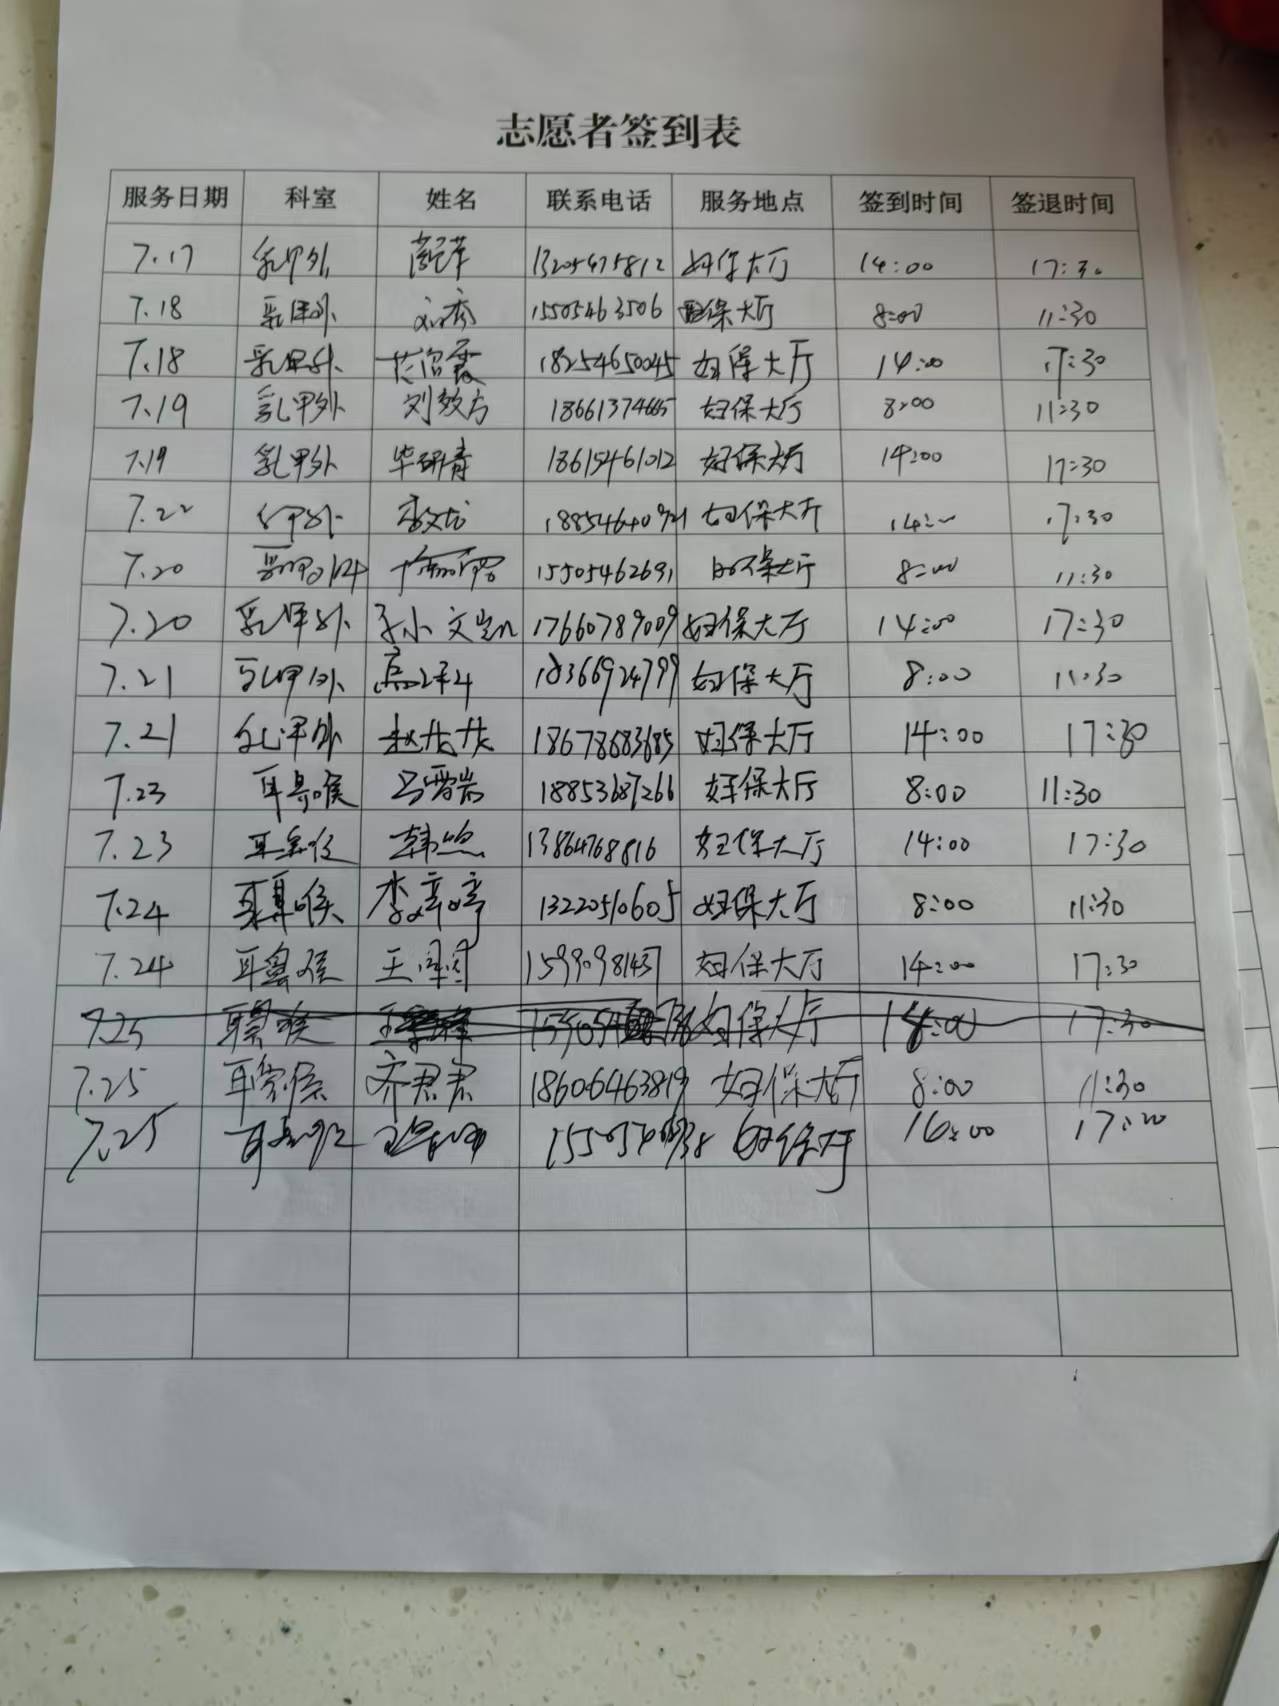 志愿者签到表
服务日期 科室 姓名 联系电话 服务地点 签到时间 签退时间
7.17 乳甲外 13205475812 妇保大厅 14:00 17:30
7.18 乳甲外 刘秀 15505463506 妇保大厅 8:00 11:30
7.18 乳甲外 18254650045 妇保大厅 14:00 17:30
7.19 乳甲外 刘效方 18661374665 妇保大厅 8:00 11:30
7.19 乳甲外 毕研青 18615461012 妇保大厅 14:00 17:30
7.22 乳甲外 李文龙 妇保大厅 14:00 17:30
7.20 15505462691 妇保大厅 8:00 11:30
7.20 乳甲外 17660789009 妇保大厅 14:00 17:30
7.21 乳甲外 18366924799 妇保大厅 8:00 11:30
7.21 乳甲外 赵龙龙 18678683685 妇保大厅 14:00 17:30
7.23 耳鼻喉 马雪岩 18853687266 妇保大厅 8:00 11:30
7.23 耳鼻喉 韩 13864768816 妇保大厅 14:00 17:30
7.24 耳鼻喉 李婷婷 13220510605 妇保大厅 8:00 11:30
7.24 耳鼻喉 王 15990981437 妇保大厅 14:00 17:30
7.25 耳鼻喉 王 妇保大厅 14:00 17:30
7.25 耳鼻喉 齐君君 18606463819 妇保大厅 8:00 11:30
7.25 耳鼻喉 妇保大厅 16:00